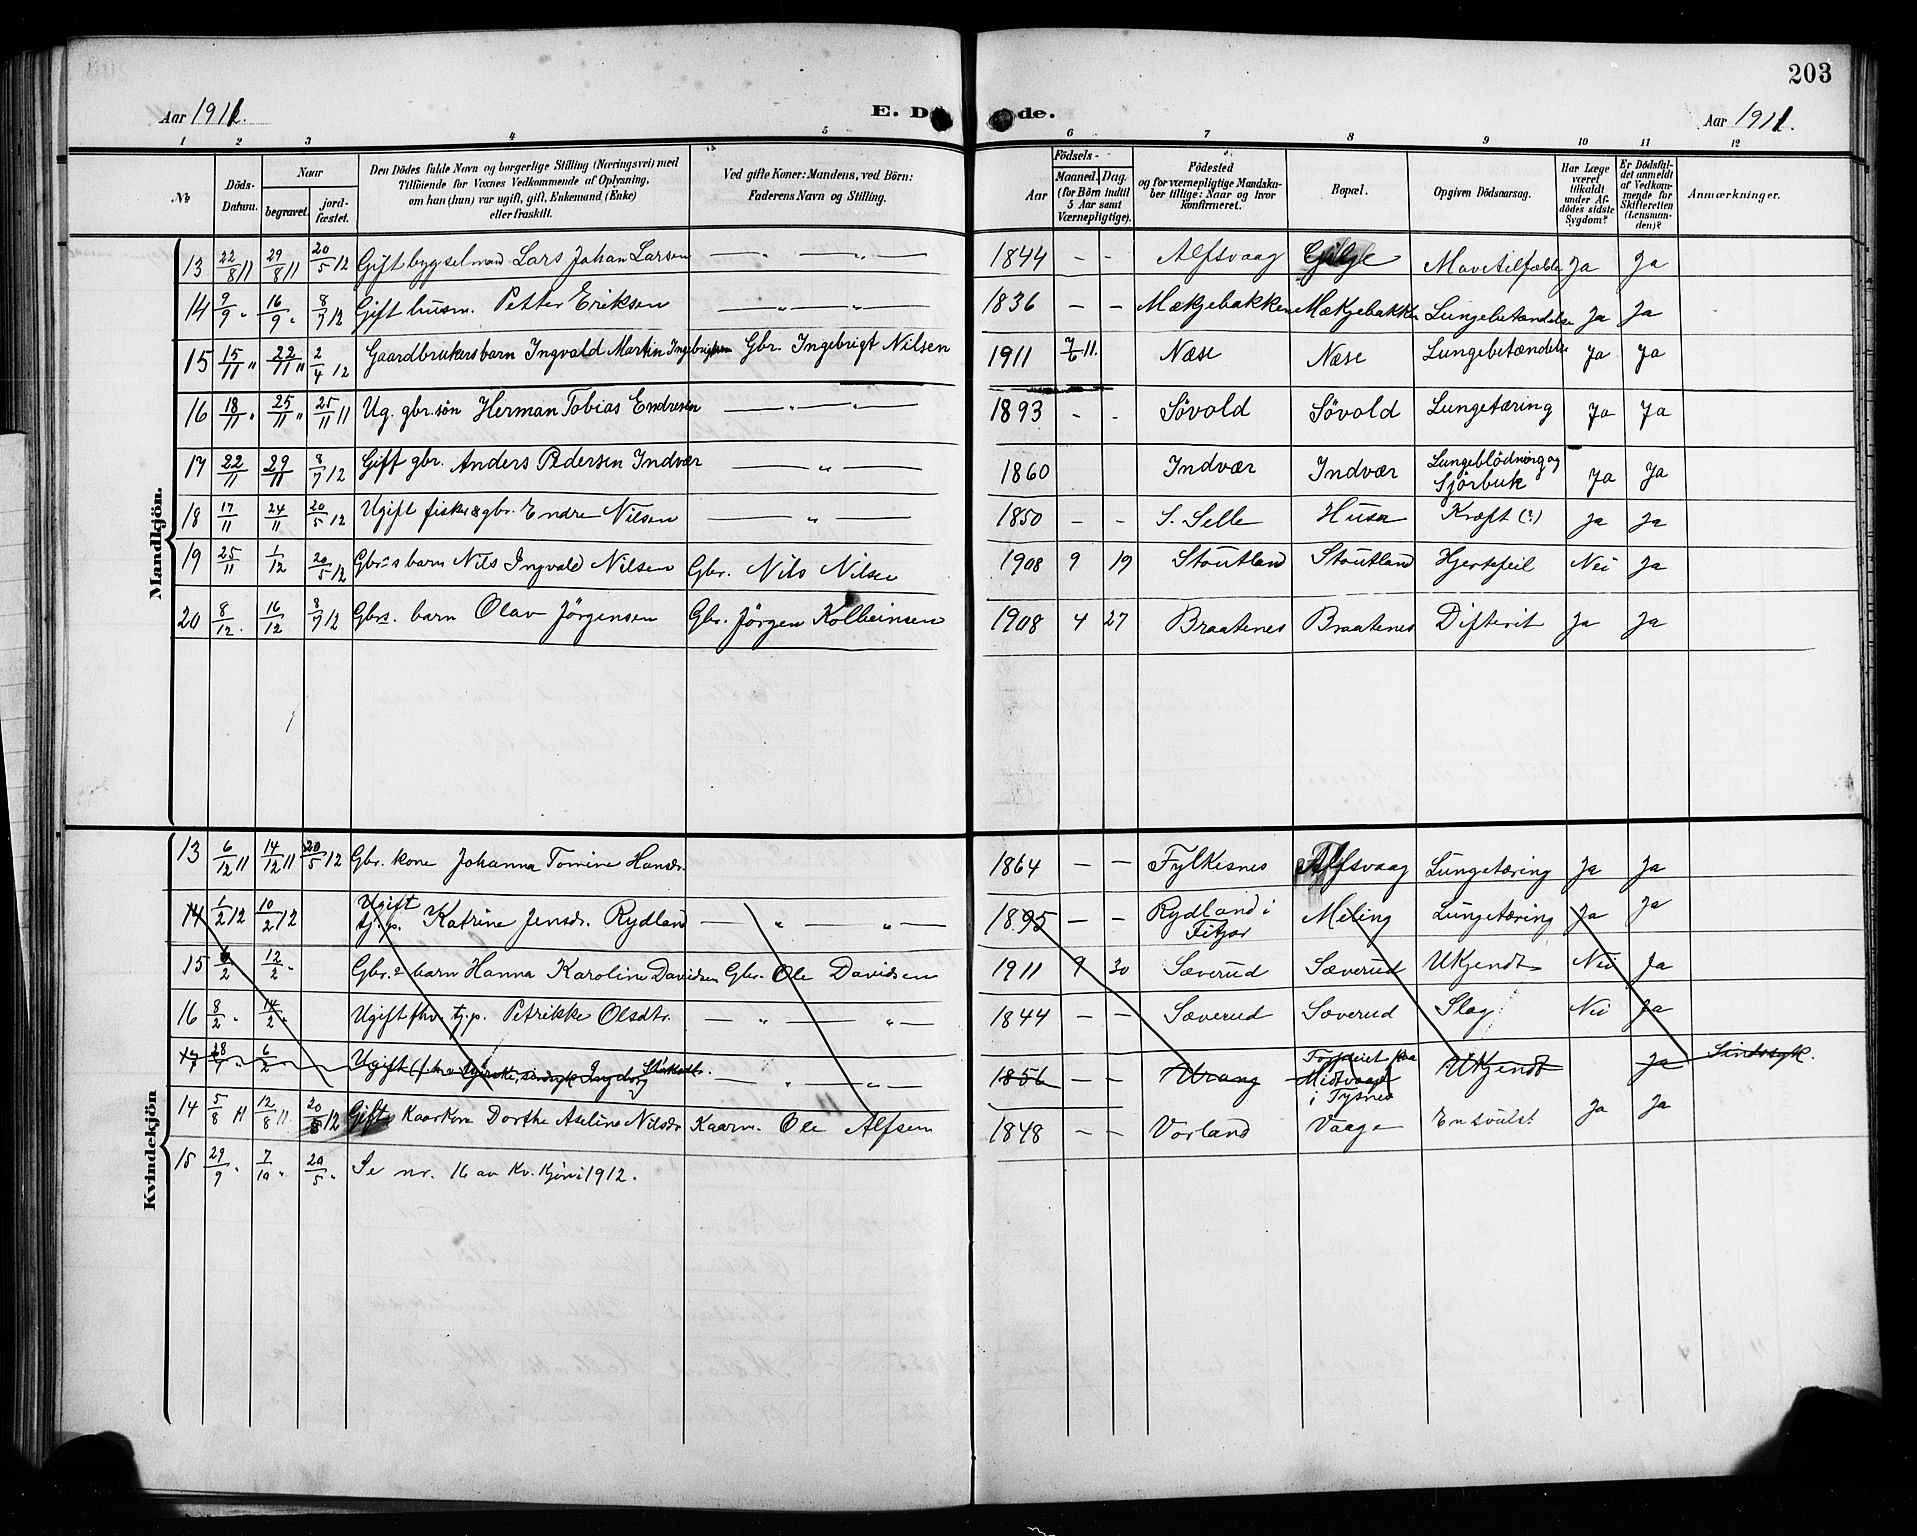 203
Aar 1911. E. Døde. Aar 1911.
1 2 3 4 5 6 7 8 9 10 11 12
No
Döds-Datum.
Naar
begravet.
jord-fæstet.
Den Dödes fulde Navn og borgerlige Stilling (Næringsvei) med
Tilföiende for Voxnes Vedkommende af Oplysning,
om han (hun) var ugift, gift, Enkemand (Enke)
eller fraskilt.
Ved gifte Koner: Mandens, ved Börn:
Faderens Navn og Stilling.
Födsels-
Aar
Maaned. Dag.
(for Börn indtil
5 Aar samt
Værnepligtige).
Födested
og for værnepligtige Mandska-
ber tillige: Naar og hvor
konfirmeret.
Bopæl.
Opgiven Dödsaarsag.
Har Læge
været
tilkaldt
under Af-
dödes sidste
Sygdom?
Er Dödsfal-
det anmeldt
af Vedkom-
mende for
Skifteretten
(Lensman-
den)?
Anmærkninger.
Mandkjön.
13 22/8 11 29/8 11 20/5 12 Gift bygselmand Lars Johan Larsen — " — " — 1844 – – Alfsvaag Gilje Mavetilfælde Ja Ja
14 9/9 " 16/9 " 8/7 12 Gift husm. Petter Eriksen — " — " — 1836 – – Mækjebakken Mækjebakken Lungebetændelse Ja Ja
15 15/11 " 22/11 " 2/4 12 Gaardbrukersbarn Ingvald Martin Ingebrigtsen Gbr. Ingebrigt Nilsen 1911 7/6 11. Næse Næse Lungebetændelse Ja Ja
16 18/11 " 25/11 " 25/11 11 Ug. gbr. søn Herman Tobias Endresen — " — " — 1893 – – Sövold Sövold Lungetæring Ja Ja
17 22/11 29/11 8/7 12 Gift gbr. Anders Pedersen Indvær — " — 1860 Indvær Indvær Lungeblödning og Ja Ja
18 17/11 24/11 20/5 12 Ugift fisker & gbr. Endre Nilsen — " — 1850 – – S. Selle Husa Kræft (?) Ja Ja
19 25/11 1/12 20/5 12 Gbr.s barn Nils Ingvald Nilsen Gbr. Nils Nilsen 1908 9 19 Stoutland Stoutland Hjertefeil Nei Ja
20 8/12. 16/12 8/7 12 Gbrs. barn Olav Jörgensen Gbr. Jörgen Kolbeinsen 1908 4 27 Braatenes Braatenes Difterit Ja Ja
Kvindekjön
13 6/12 11 14/12 11 20/5 12 Gbr. kone Johanna Tomine Hansdr. 1864 – – Fylkesnes Alfsvaag Lungetæring Ja Ja
14 1/2 12 10/2 12 Ugift tj. p. Katrine Jensdr. Rydland — " — " — 1895 – – Rydland i Fitjar Meling Lungetæring Ja Ja
15 6/2 12/2 " Gbr.s barn Hanna Karoline Davidsen Gbr. Ole Davidsen 1911 9 30 Sæverud Sæverud Ukjendt Nei Ja
16 8/2 " 14/2 " Ugift fhv. tj. p. Petrikke Olsdtr. — " — " — 1844 – – Sæverud Sæverud Slag Nei Ja
17 28/1 6/2 Ugift sindsyk Ingborg — " — " — 1856 – – Urang Midtvaage i Tysnes Ukjendt Ja Sindssyk.
14 5/8 11 12/8 11 20/5 12 Gift Kaarkone Dorthe Aseline Nilsdr. Kaarm. Ole Alfsen 1848 – – Vorland Vaage En svulst Ja Ja
15 29/9 " 7/10 " 20/5 " Se nr. 16 av Kv. kjön i 1912.